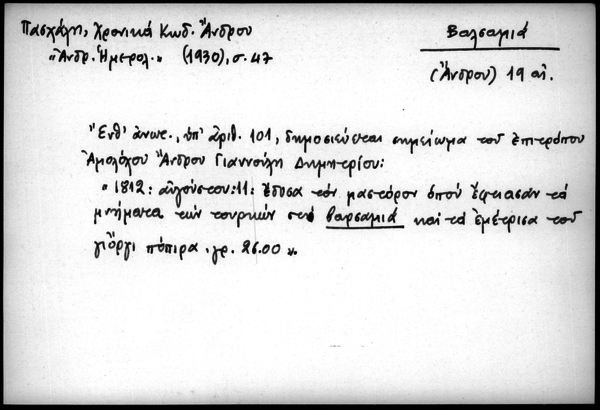 Πασχάλη, Χρονικά Κωδ. Ἄνδρου
"Ἀνδρ. Ἡμερολ." (1930), σ. 47
Βαλσαμιά
(Ἄνδρου) 19 αἰ.
"Ἔνθ' ἀνωτ., ὑπ' ἀριθ. 101, δημοσιεύεται σημείωμα τοῦ ἐπιτρόπου
Ἀμολόχου Ἄνδρου Γιαννούλη Δημητρίου:
"1812: αὐγούστου: 11: ἔδυσα τὸν μαστόρον ὁποῦ ἔφκιασαν τὰ
μνήματα τῶν τουρκῶν στὴ βαρσαμιά καὶ τὰ ἐμέτρισα τοῦ
γιόργι πόπιρα. γρ. 26.00".